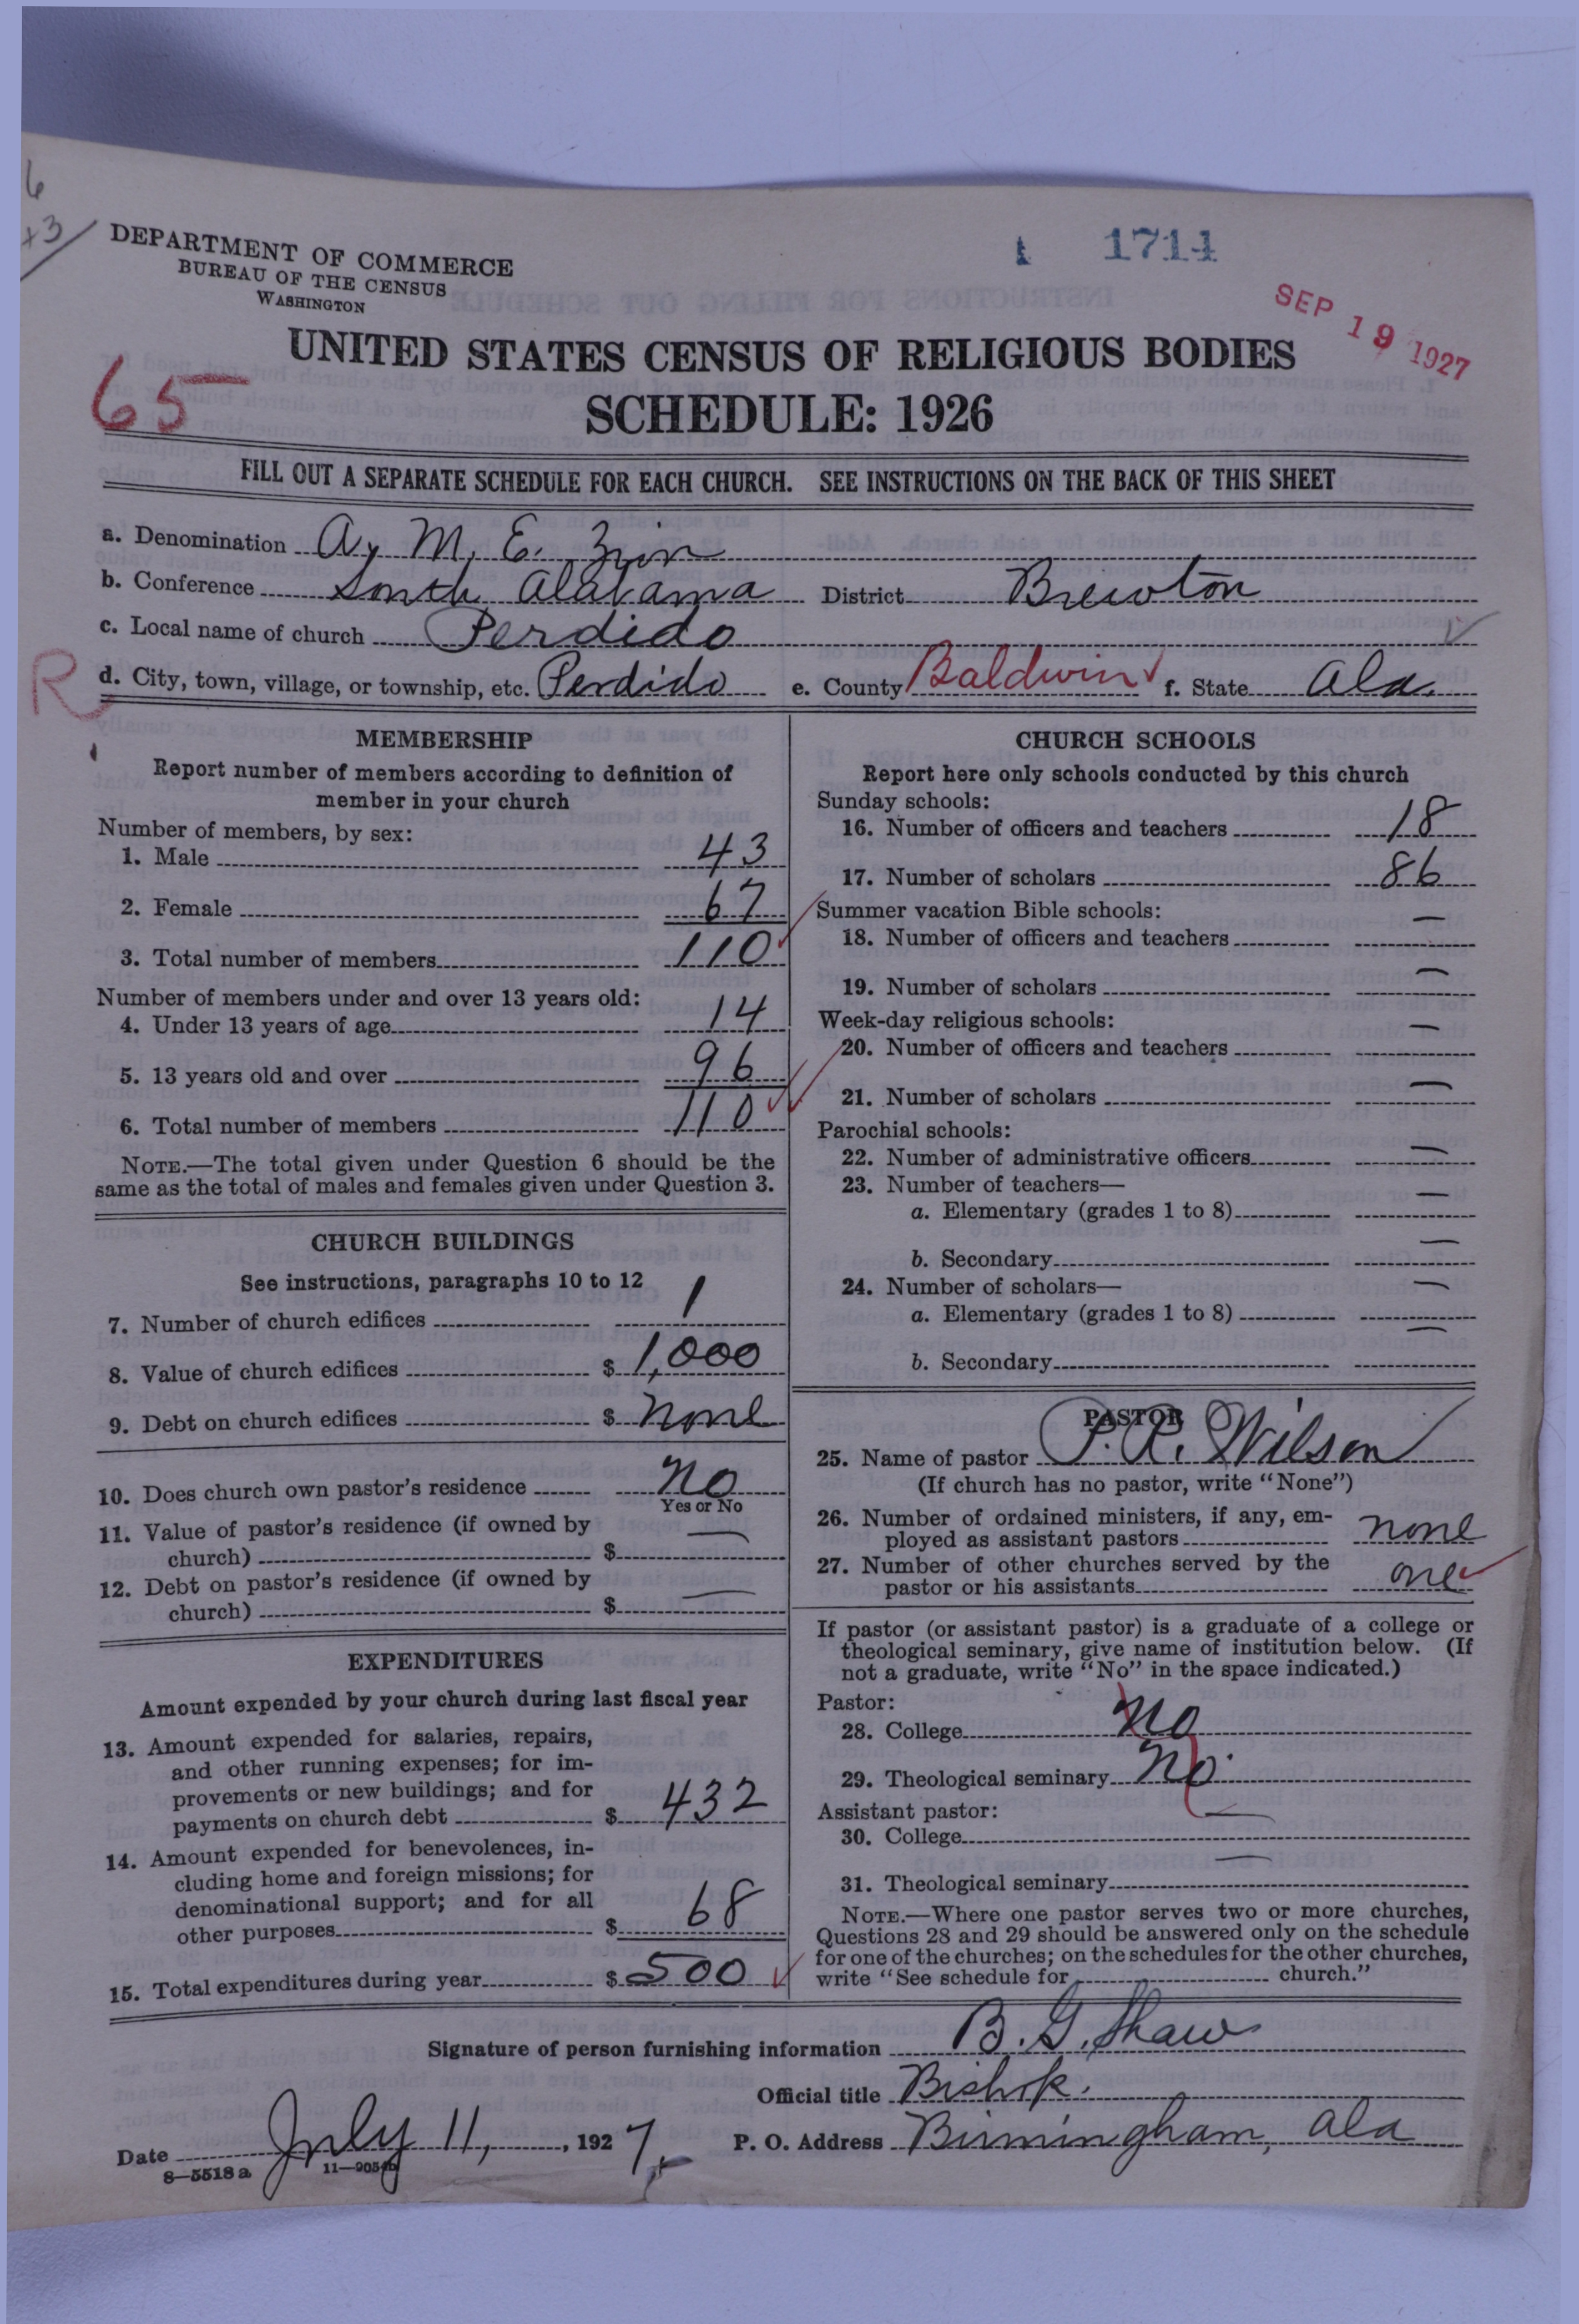 6
+3/
DEPARTMENT OF COMMERCE
BUREAU OF THE CENSUS
WASHINGTON
1 1714
SEP 19 1927
UNITED STATES CENSUS OF RELIGIOUS BODIES
65
SCHEDULE: 1926
FILL OUT A SEPARATE SCHEDULE FOR EACH CHURCH. SEE INSTRUCTIONS ON THE BACK OF THIS SHEET
a. Denomination A. M. E. Zion
b. Conference South Alabama District Brewton
c. Local name of church Perdido
R
d. City, town, village, or township, etc. Perdido e. County Baldwin f. State Ala.
MEMBERSHIP
Report number of members according to definition of
member in your church
Number of members, by sex:
1. Male 43
2. Female 67
3. Total number of members 110
Number of members under and over 13 years old:
4. Under 13 years of age 14
5. 13 years old and over 96
6. Total number of members 110
NOTE.—The total given under Question 6 should be the
same as the total of males and females given under Question 3.
CHURCH BUILDINGS
See instructions, paragraphs 10 to 12
7. Number of church edifices 1
8. Value of church edifices $ 1,000
9. Debt on church edifices $ none
10. Does church own pastor's residence no
Yes or No
11. Value of pastor's residence (if owned by
church) $ —
12. Debt on pastor's residence (if owned by
church) $ —
EXPENDITURES
Amount expended by your church during last fiscal year
13. Amount expended for salaries, repairs,
and other running expenses; for im-
provements or new buildings; and for
payments on church debt $ 432
14. Amount expended for benevolences, in-
cluding home and foreign missions; for
denominational support; and for all
other purposes $ 68
15. Total expenditures during year $ 500
CHURCH SCHOOLS
Report here only schools conducted by this church
Sunday schools:
16. Number of officers and teachers 18
17. Number of scholars 86
Summer vacation Bible schools:
18. Number of officers and teachers —
19. Number of scholars —
Week-day religious schools:
20. Number of officers and teachers —
21. Number of scholars —
Parochial schools:
22. Number of administrative officers —
23. Number of teachers—
a. Elementary (grades 1 to 8) —
b. Secondary —
24. Number of scholars—
a. Elementary (grades 1 to 8) —
b. Secondary —
PASTOR
25. Name of pastor P. R. Wilson
(If church has no pastor, write "None")
26. Number of ordained ministers, if any, em-
ployed as assistant pastors none
27. Number of other churches served by the
pastor or his assistants one
If pastor (or assistant pastor) is a graduate of a college or
theological seminary, give name of institution below. (If
not a graduate, write "No" in the space indicated.)
Pastor:
28. College no
29. Theological seminary no.
Assistant pastor:
30. College —
31. Theological seminary —
NOTE.—Where one pastor serves two or more churches,
Questions 28 and 29 should be answered only on the schedule
for one of the churches; on the schedules for the other churches,
write "See schedule for church."
Signature of person furnishing information B. G. Shaw
Official title Bishop.
Date July 11, 1927. P. O. Address Birmingham, Ala
8—5518a 11—9054b